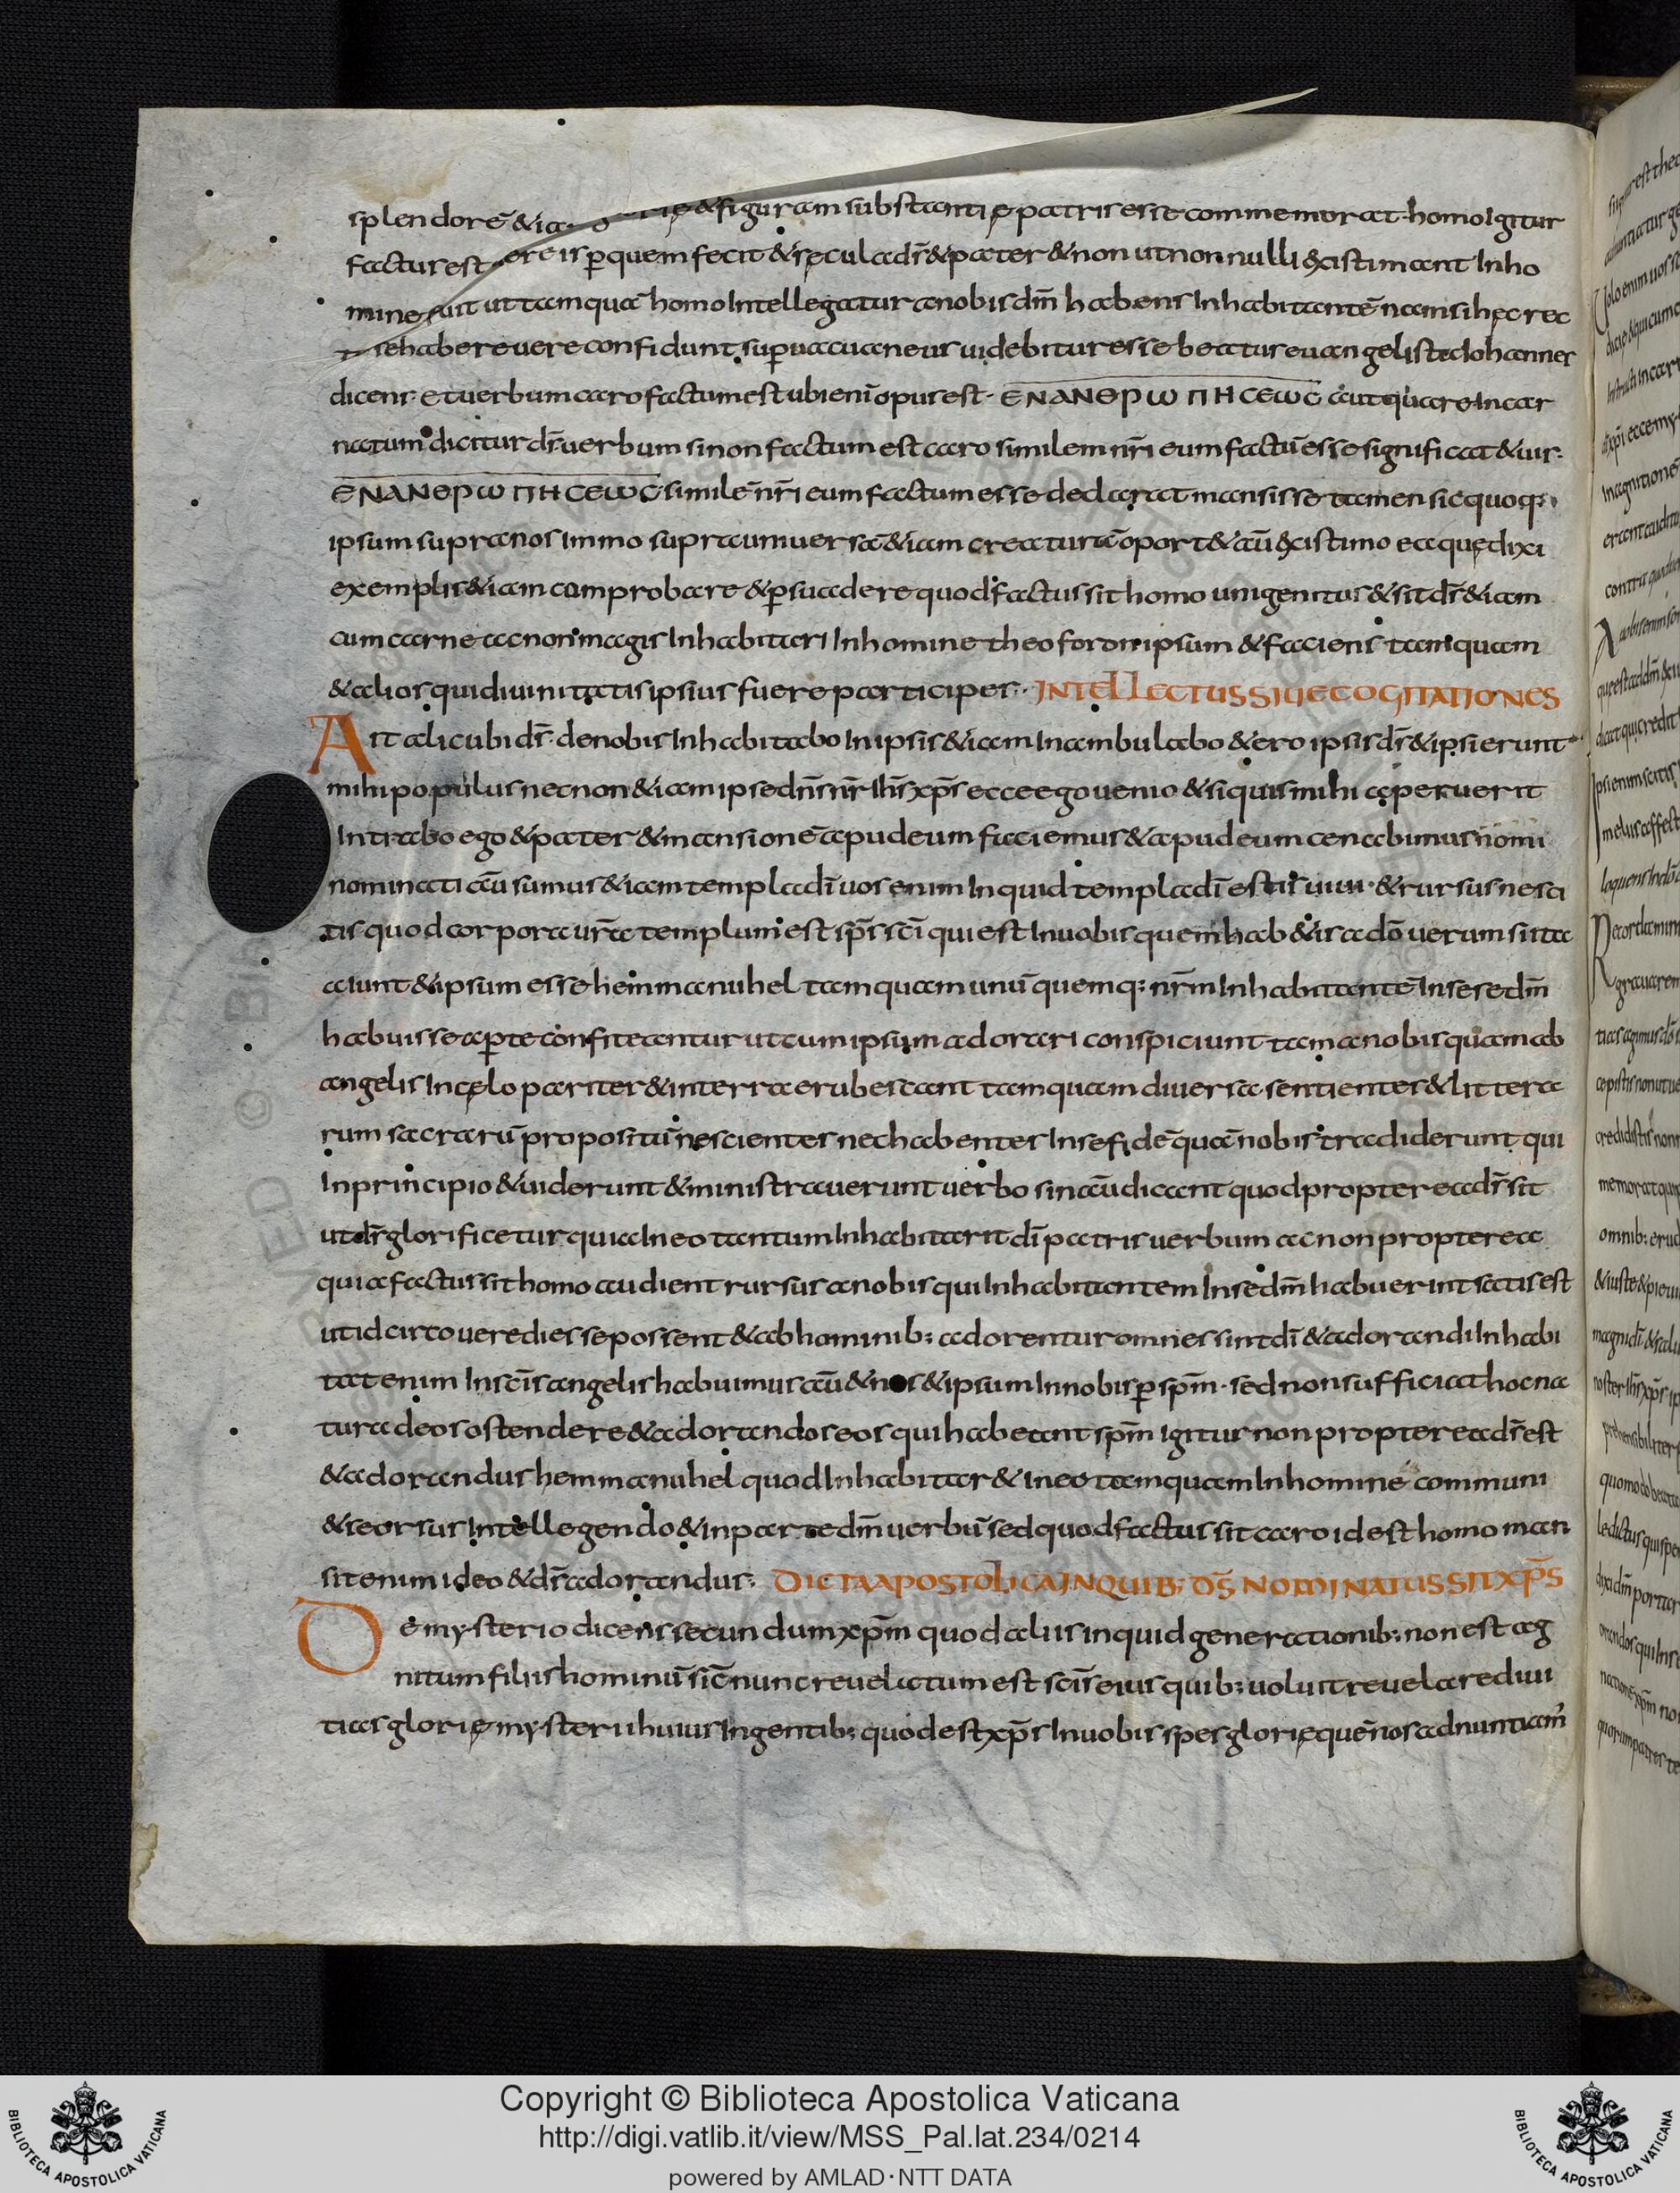 splendorē & ia ę & figuram substantię patris esse commemorat· homo Igitur
factus est ꝑ quem fecit & sęcula dr̄ & pater & non ut non nulli existimant Inho
mine ut tamquā homo Intellegatur a nobis dm̄ habens Inhabitantē nam si hęc rec
se habere uere confidunt supuacuaneus uidebitur esse beatus euangelista Iohannes
dicens· et uerbum caro factum est ubi enī opus est· ЄΝΑΝΘΡωΠΗCЄωC aut quare Incar
natum dicitur dr̄ uerbum si non factum est caro similem nr̄i eum factū esse significat & uis·
ЄΝΑΝΘΡωΠΗCЄωC similē nr̄i eum factum esse declarat mansisse tamen sic quoq;
ipsum supra nos Immo supra uniuersā & iam creaturā oport& aū existimo ea quę dixi
exemplis & iam comprobare & ꝑsuadere quod factus sit homo unigenitus & sit dr̄ & iam
cum carne ac non magis Inhabitari In homine theoforon ipsum & faciens tamquam
& alios qui diuinitatis ipsius fuere participes· INTELLECTUS SIUE COGITATIONES
Ait alicubi dr̄· de nobis Inhabitabo In ipsis & iam Inambulabo & ero ipsis dr̄ & ipsi erunt
mihi populus necnon & iam ipse dn̄s nr̄ Ih̄s xp̄s ecce ego uenio & si quis mihi aperuerit
Intrabo ego & pater & mansionē apud eum faciemus & apud eum cenabimus nomi
nominati aū sumus & iam templa dī uos enim Inquid templa dī estis uiui· & rursus nesci
tis quod corpora ur̄a templum est sp̄s sc̄i qui est In uobis quem hab&is a dō uerum si ita
aiunt & ipsum esse hemmanuhel tamquam unū quemq; nr̄m Inhabitantē In se se dm̄
habuisse aꝑte confiteantur ut cum ipsum adorari conspiciunt tam a nobis quam ab
angelis In cęlo pariter & in terra erubescant tamquam diuersa sentientes & littera
rum sacrarū propositū nescientes nec habentes In se fidē quā nobis tradiderunt qui
In principio & uiderunt & ministrauerunt uerbo sin aū dicant quod propterea dr̄ sit
ut dr̄ glorificetur quia In eo tantum Inhabitarit dī patris uerbum ac non propterea
quia factus sit homo audient rursus a nobis qui Inhabitantem In se dm̄ habuerint satis est
ut id circo uere dies se possent & ab hominib; adorentur omnes sint dī & adorandi Inhabi
tat enim In sc̄is angelis habuimus aū & nos & ipsum In nobis ꝑ spm̄· sed non sufficiat hoc na
tura deos ostendere & adorandos eos qui habeant spm̄ Igitur non propterea dr̄ est
& adorandus hemmanuhel quod Inhabitar& In eo tamquam In homine communi
& seorsus Intellegendo & in parte dm̄ uerbū sed quod factus sit caro id est homo man
sit enim ideo & dr̄ adorandus· DICTA APOSTOLICA IN QUIB; DS̄ NOMINATUS SIT XP̄S
De mysterio dicens secundum xpm̄ quod aliis inquid generationib; non est ag
nitum filiis hominū sic nunc reuelatum est sc̄is eius quib; uoluit reuelare diui
tias glorię mysterii huius In gentib; quod est xp̄s In uobis spes glorię quē nos adnuntiam'
Copyright © Biblioteca Apostolica Vaticana
http://digi.vatlib.it/view/MSS_Pal.lat.234/0214
powered by AMLAD·NTT DATA
BIBLIOTECA APOSTOLICA VATICANA
BIBLIOTECA APOSTOLICA VATICANA